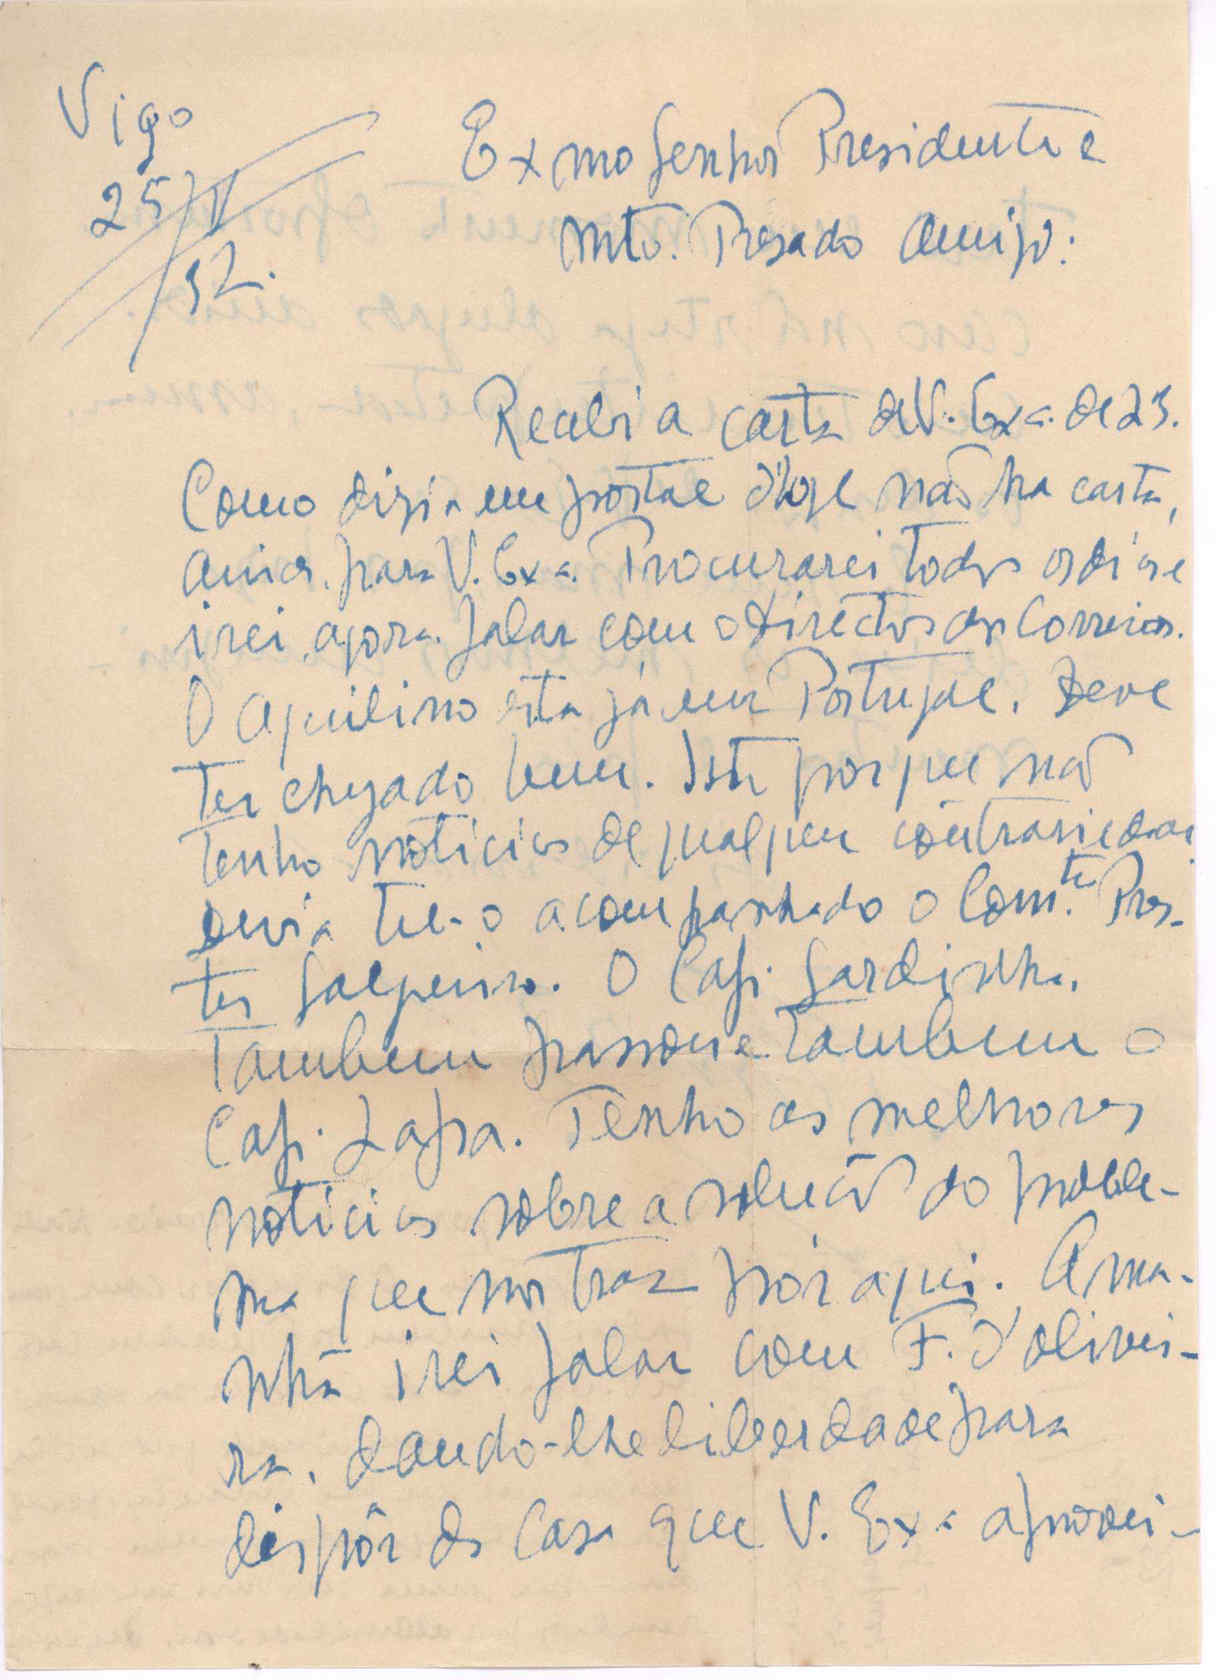 Vigo
25/V
/32.
Exmo Senhor Presidente e
Mto. Presado Amigo:
Recebi a carta de V. Exa. de 23.
Como dizia em postal d'hoje não ha carta,
amiga. para V. Exa. Procurarei todos os dias e
irei, agora. falar com o director dos Correios.
O Aquilino esta já em Portugal. Deve
ter chegado bem. Isto porque não
tenho noticias de qualquer contrariedade
Devia tel-o acompanhado o Comte. Pres-
tes Salgueiro. O Cap. Sardinha.
Tambem passou e Tambem o
Cap. Lapa. Tenho as melhores
noticias sobre a solução do proble-
ma que nos traz pór aqui. Ama-
nhã irei falar com F. d'Olivei-
ra. dando-lhe liberdade para
dispôr da Casa que V. Exa aprovei-